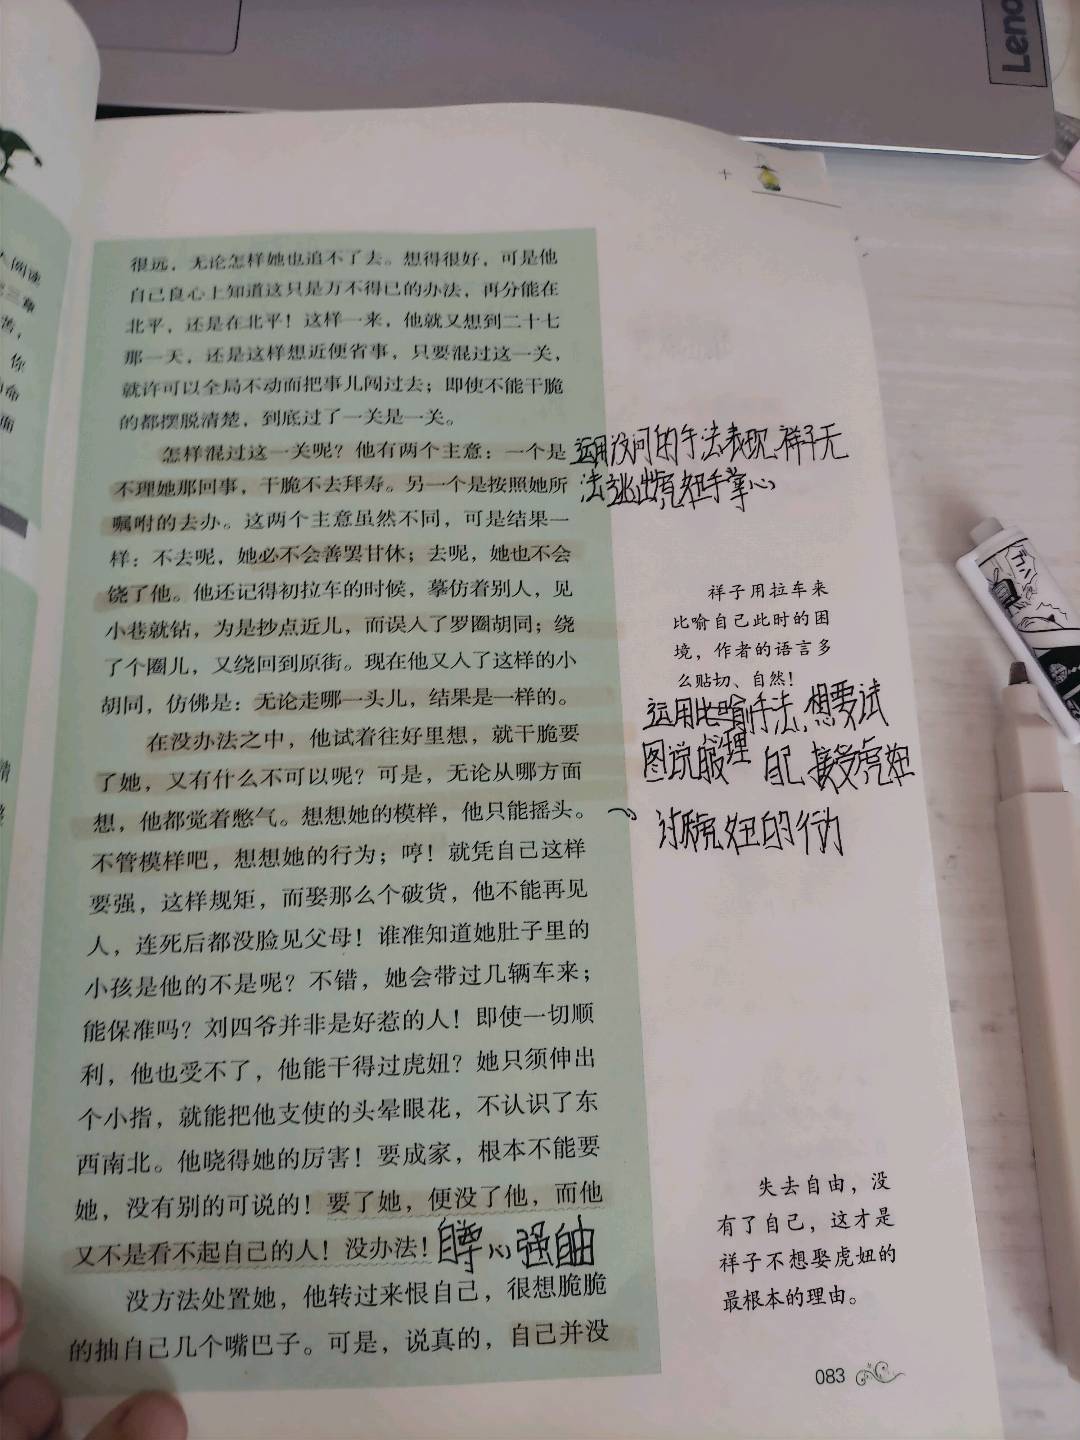 Leno
十
人阅读
三章
善，
你
命
面
很远，无论怎样她也追不了去。想得很好，可是他
自己良心上知道这只是万不得已的办法，再分能在
北平，还是在北平！这样一来，他就又想到二十七
那一天，还是这样想近便省事，只要混过这一关，
就许可以全局不动而把事儿闯过去；即使不能干脆
的都摆脱清楚，到底过了一关是一关。
怎样混过这一关呢？他有两个主意：一个是
不理她那回事，干脆不去拜寿。另一个是按照她所
嘱咐的去办。这两个主意虽然不同，可是结果一
样：不去呢，她必不会善罢甘休；去呢，她也不会
饶了他。他还记得初拉车的时候，摹仿着别人，见
小巷就钻，为是抄点近儿，而误入了罗圈胡同；绕
了个圈儿，又绕回到原街。现在他又入了这样的小
胡同，仿佛是：无论走哪一头儿，结果是一样的。
在没办法之中，他试着往好里想，就干脆要
了她，又有什么不可以呢？可是，无论从哪方面
想，他都觉着憋气。想想她的模样，他只能摇头。
不管模样吧，想想她的行为；哼！就凭自己这样
要强，这样规矩，而娶那么个破货，他不能再见
人，连死后都没脸见父母！谁准知道她肚子里的
小孩是他的不是呢？不错，她会带过几辆车来；
能保准吗？刘四爷并非是好惹的人！即使一切顺
利，他也受不了，他能干得过虎妞？她只须伸出
个小指，就能把他支使的头晕眼花，不认识了东
西南北。他晓得她的厉害！要成家，根本不能要
她，没有别的可说的！要了她，便没了他，而他
又不是看不起自己的人！没办法！
自尊心强 自由
没方法处置她，他转过来恨自己，很想脆脆
的抽自己几个嘴巴子。可是，说真的，自己并没
运用设问的手法表现祥子无
法逃出虎妞手掌心
祥子用拉车来
比喻自己此时的困
境，作者的语言多
么贴切、自然！
运用比喻手法，想要试
图说服 自己 接受虎妞
讨厌虎妞的行为
失去自由，没
有了自己，这才是
祥子不想娶虎妞的
最根本的理由。
083